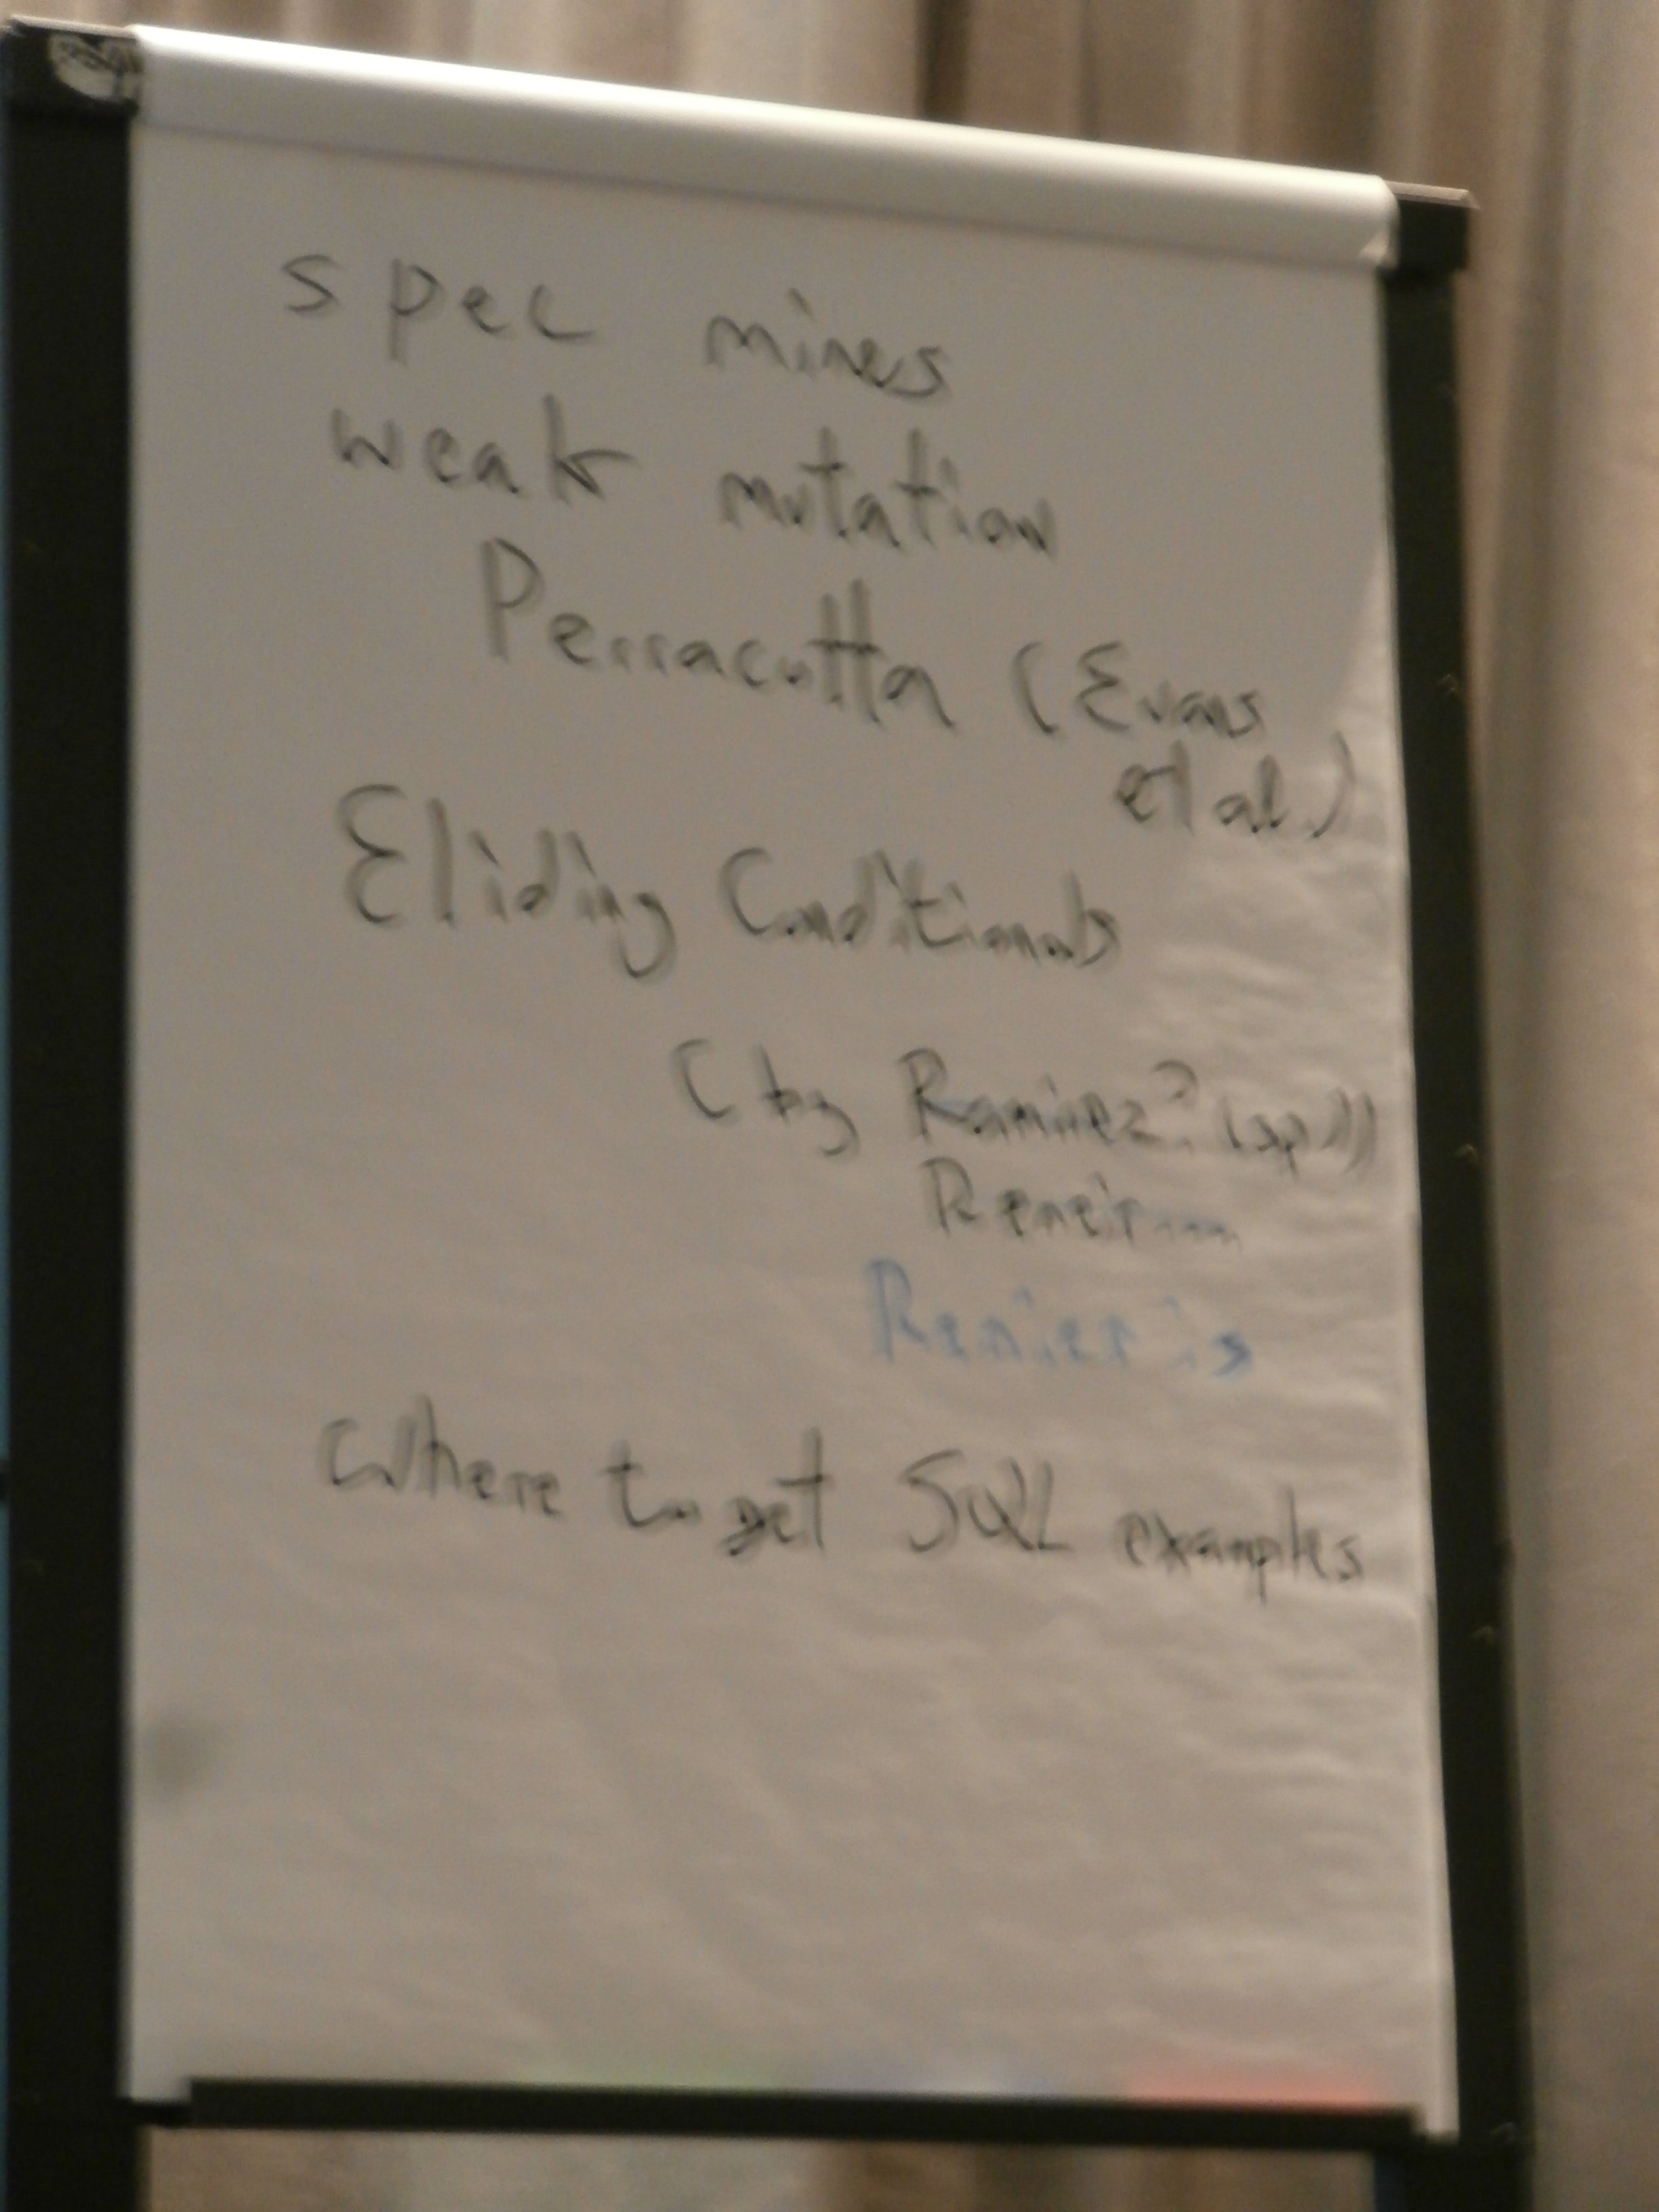 spec miners
weak mutation
Perracotta (Evans
et al.)
Eliding Conditionals
(by Ramirez? (sp))
Renieris
Where to get SQL examples